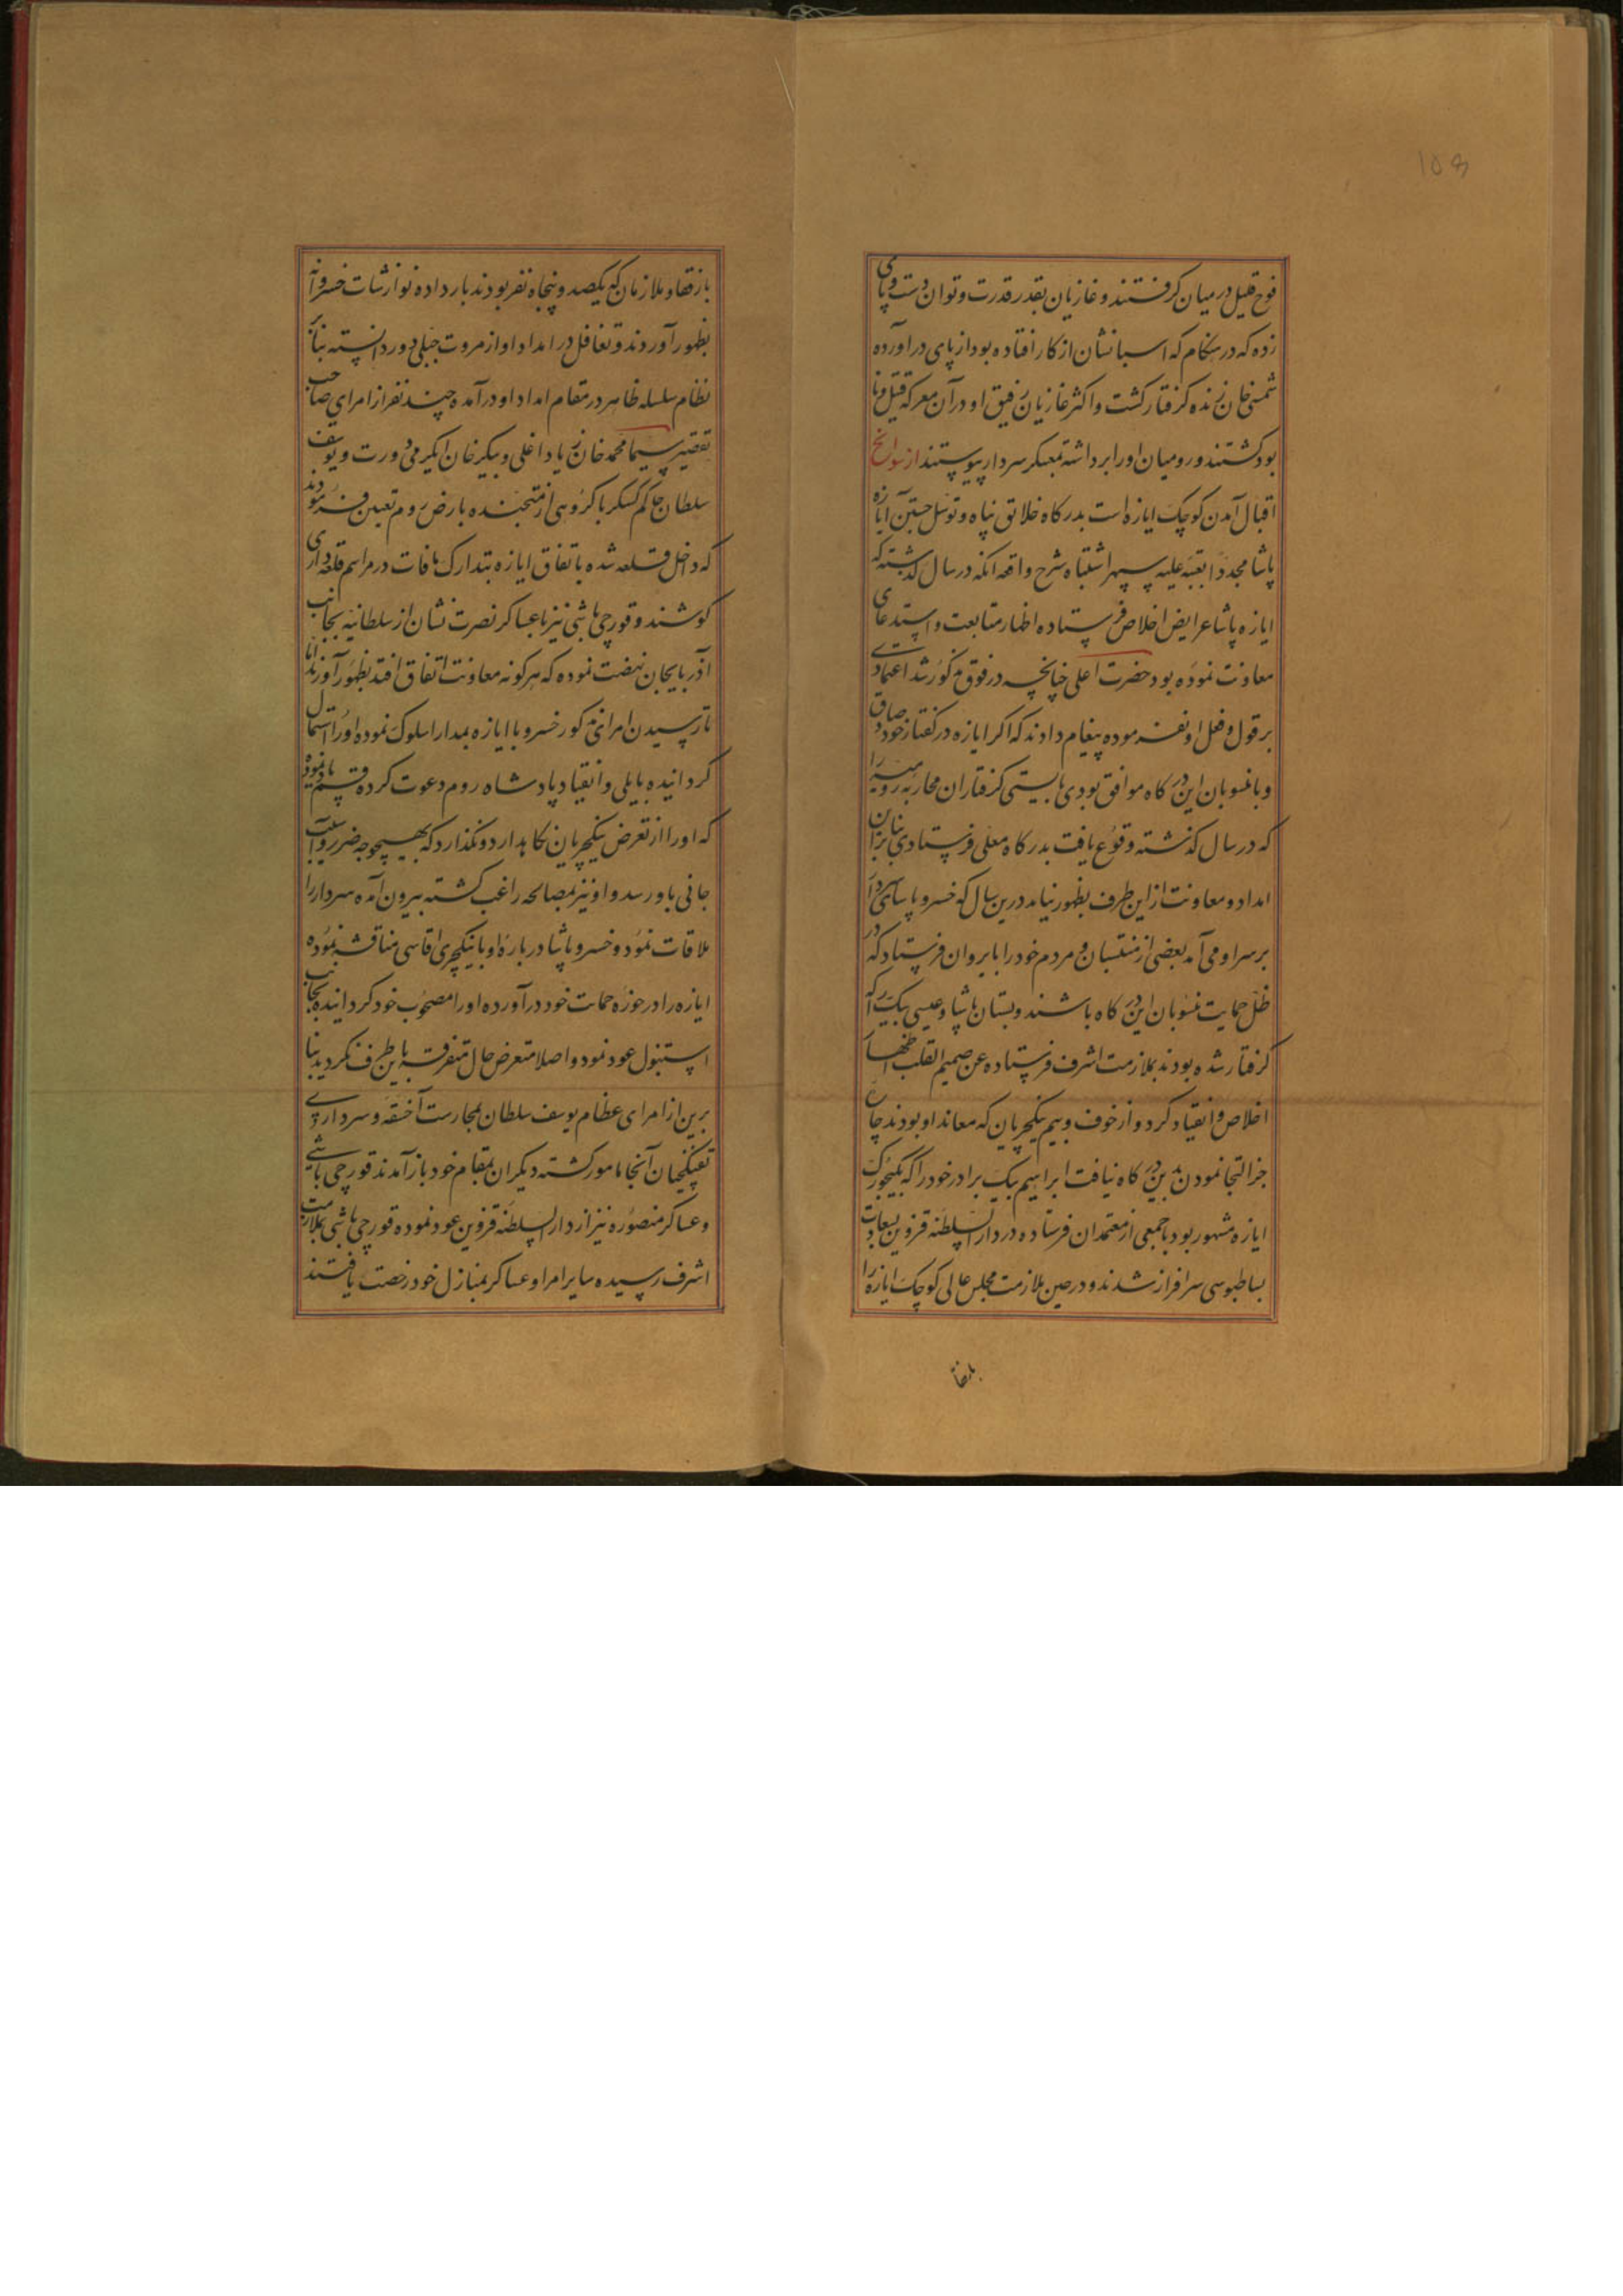 108
فوج قلیل در میان گرفتند و غازیان بقدر قدرت و توان دست و پای
زده که در هنگام که اسبانشان از کار افتاده بود از پای در آورده
شمسی خان زنده گرفتار گشت و اکثر غازیان رفیق او در آن معرکه قتیل و نا
بود گشتند و رومیان او را برداشته بمعسکر سردار پیوستند از سوانح
اقبال آمدن کوچک ایازه است بدرگاه خلائق پناه و توسل جستن ایازه
پاشا مجددا بعتبه علیه سپهر اشتباه شرح واقعه آنکه در سال گذشته که
ایازه پاشا عرایض اخلاص فرستاده اظهار متابعت و استدعای
معاونت نموده بود حضرت اعلی چنانچه در فوق مذکور شد اعتمادی
بر قول و فعل او نفرموده پیغام دادند که اگر ایازه در گفتار خود صادق
و با منسوبان این درگاه موافق بودی بایستی گرفتاران محاربه رومیه را
که در سال گذشته وقوع یافت بدرگاه معلی فرستادی بنابران
امداد و معاونت ازین طرف بظهور نیامد درین سال که خسرو پاشای سردار
بر سر او می آمد بعضی از منتسبان و مردم خود را بایروان فرستاد که در
ظل حمایت منسوبان این درگاه باشند و بستان پاشا و عیسی بیک را که
گرفتار شده بودند بملازمت اشرف فرستاده عن صمیم القلب اظهار
اخلاص و انقیاد کرد و از خوف و بیم ینکچریان که معاند او بودند چاره
جز التجا نمودن بدین درگاه نیافت ابراهیم بیک برادر خود را که بکوچک
ایازه مشهور بود با جمعی از معتمدان فرستاده در دار السلطنه قزوین بسعادت
بساطبوسی سرافراز شدند و در حین ملازمت مجلس عالی کوچک ایازه را
با رفقا
با رفقا و ملازمان که یکصد و پنجاه نفر بودند بار داده نوازشات خسروانه
بظهور آوردند و تغافل در امداد او از مروت جبلی دور دانسته بنابر
نظام سلسله ظاهر در مقام امداد او درآمده چند نفر از امرای صاحب
تقصیر سیما محمد خان زیاد اغلی و بیکر خان ایگرمی دورت و یوسف
سلطان حاکم کسکر با گروهی از منتخبنده بارض روم تعیین فرمودند
که داخل قلعه شده باتفاق ایازه بتدارک مافات در مراسم قلعه داری
کوشند و قورچی باشی نیز با عساکر نصرت نشان از سلطانیه بجانب
آذربایجان نهضت نموده که هر گونه معاونت اتفاق افتد بظهور آورند اما
تا رسیدن امرای مذکور خسرو با ایازه بمدارا سلوک نموده او را استمالت
گردانیده بایلی و انقیاد پادشاه روم دعوت کرده قسم یاد نمود
که او را از تعرض ینکچریان نگاهدارد و نگذارد که بهیچوجه ضرر و آسیب
جانی باو رسد و او نیز بمصالحه راغب گشته بیرون آمده سردار را
ملاقات نمود و خسرو پاشا درباره او با ینکچری اقاسی مناقشه نموده
ایازه را در حوزه حمایت خود درآورده او را مصحوب خود گردانیده بجانب
استنبول عود نمود و اصلا متعرض حال متفرقه باین طرف نگردید بنا
برین از امرای عظام یوسف سلطان بمحارست آخسقه و سرداری
تفنکچیان آنجا مامور گشته دیگران بمقام خود باز آمدند قورچی باشی
و عساکر منصوره نیز از دار السلطنه قزوین عود نموده قورچی باشی بملازمت
اشرف رسیده سایر امرا و عساکر بمنازل خود رخصت یافتند